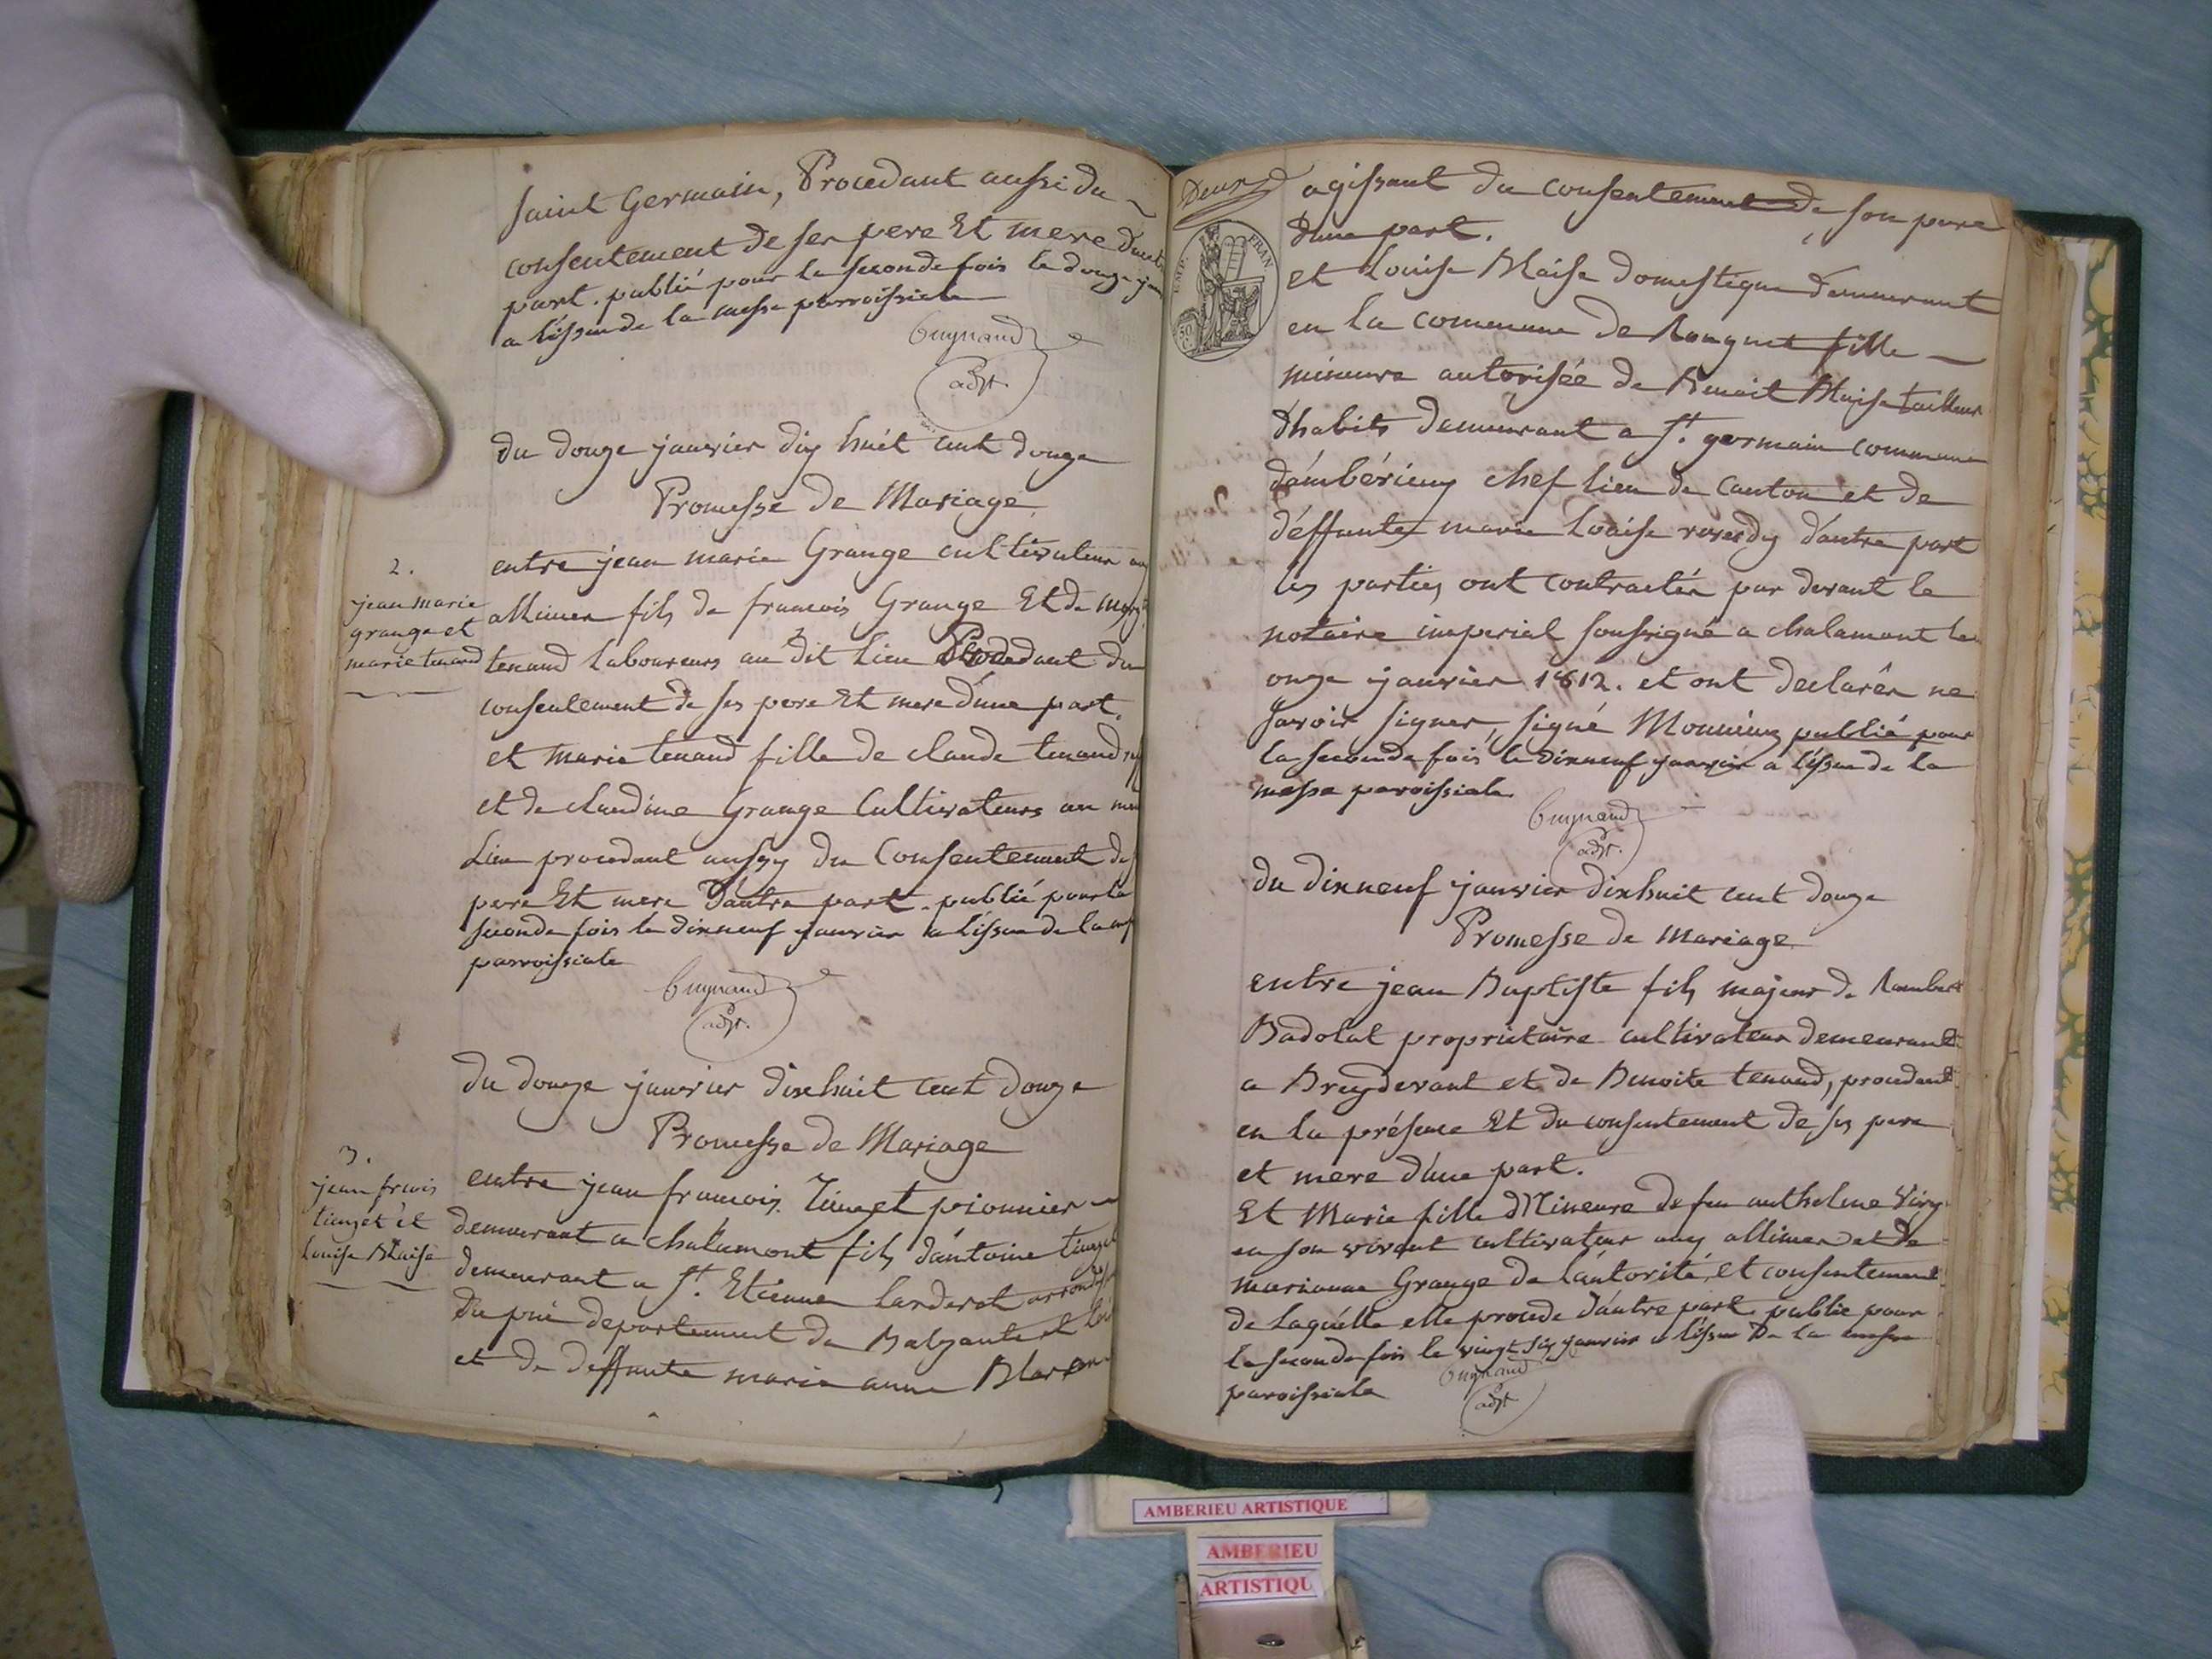 saint Germain, Procedant aussi du
consentement de ses pere Et mere d'autre
part. publié pour la seconde fois le douze
a l'issue de la messe parroissiale
Guynand
adjt.
du douze janvier dix huit cent douze
Promesse de Mariage
2.
jean marie
grange et
marie tenand
entre jean marie Grange cultivateur
allimes fils de francois Grange Et de
tenand laboureurs au dit Lieu Procedant du
consentement de ses pere Et mere d'une part.
et marie tenand fille de claude tenand
et de claudine Grange Cultivateurs au
Lieu procedant aussy du Consentement de
pere Et mere d'autre part. publié pour la
seconde fois le dixneuf janvier a l'issue de la
parroissiale
Guynand
adjt.
du douze janvier dixhuit cent douze
Promesse de Mariage
3.
jean frcois
tinget et
louise Blaise
entre jean francois Tinget pionnier
demeurant a chalamont fils d'antoine tinget
demeurant a St. Etienne larderol
du puÿ departement de
et de deffunte marie anne
Deux
EMP. FRAN.
50 C.
agissant du consentement de son pere
d'une part.
et Louise Blaise domestique demeurant
en la commune de fille
mineure autorisée de Benoit Blaise tailleur
d'habits demeurant a St. germain commune
d'ambérieux chef lieu de Canton et de
déffunte marie Louise d'autre part
les parties ont contractés par devant le
notaire imperial soussigné a chalamont le
onze janvier 1812. et ont declarés ne
savoir signer, signé Monnieux publié pour
la seconde fois le dixneuf janvier a l'issue de la
messe paroissiale.
Guynand
adjt.
du dixneuf janvier dixhuit cent douze
Promesse de Mariage
entre jean Baptiste fils majeur de Rambert
Badolat propriétaire cultivateur demeurant
a Breydevant et de Benoite tenand, procedant
en la présence Et du consentement de ses pere
et mere d'une part.
Et Marie fille Mineure de feu anthelme
en son vivant cultivateur aux allimes et de
marianne Grange de l'autorité, et consentement
de laquelle elle procede d'autre part. publié pour
la seconde fois le vingt six janvier a l'issue De la messe
paroissiale
Guynand
adjt
AMBERIEU ARTISTIQUE
AMBERIEU
ARTISTIQU